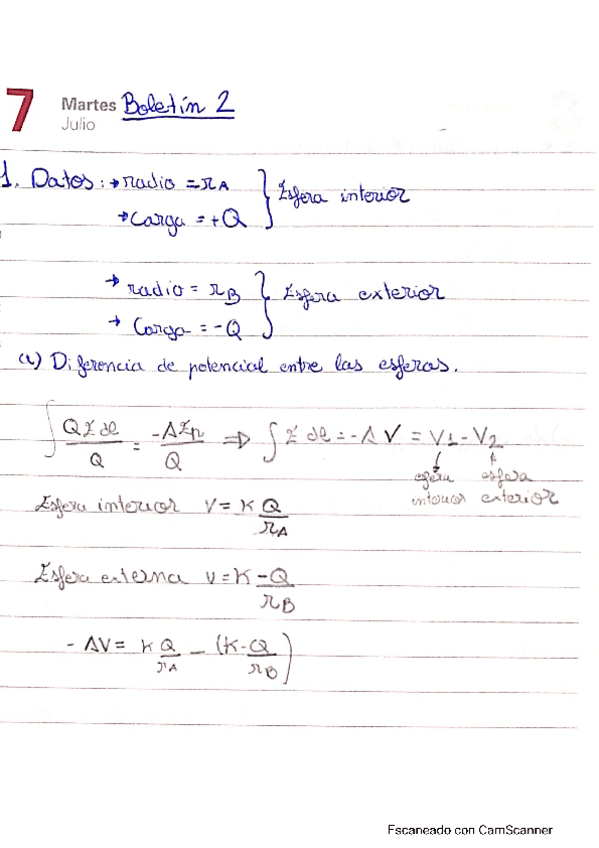 7 Martes Boletín 2
Julio
1. Datos: → radio = rA } Esfera interior
→ Carga = +Q
→ radio = rB } Esfera exterior
→ Carga = -Q
(a) Diferencia de potencial entre las esferas.
∫ QE dl / Q = -ΔEp / Q ⇒ ∫ E dl = -ΔV = V1 - V2
esfera esfera
interior exterior
Esfera interior V = K Q / rA
Esfera externa V = K -Q / rB
- ΔV = K Q / rA - (K -Q / rB)
Escaneado con CamScanner